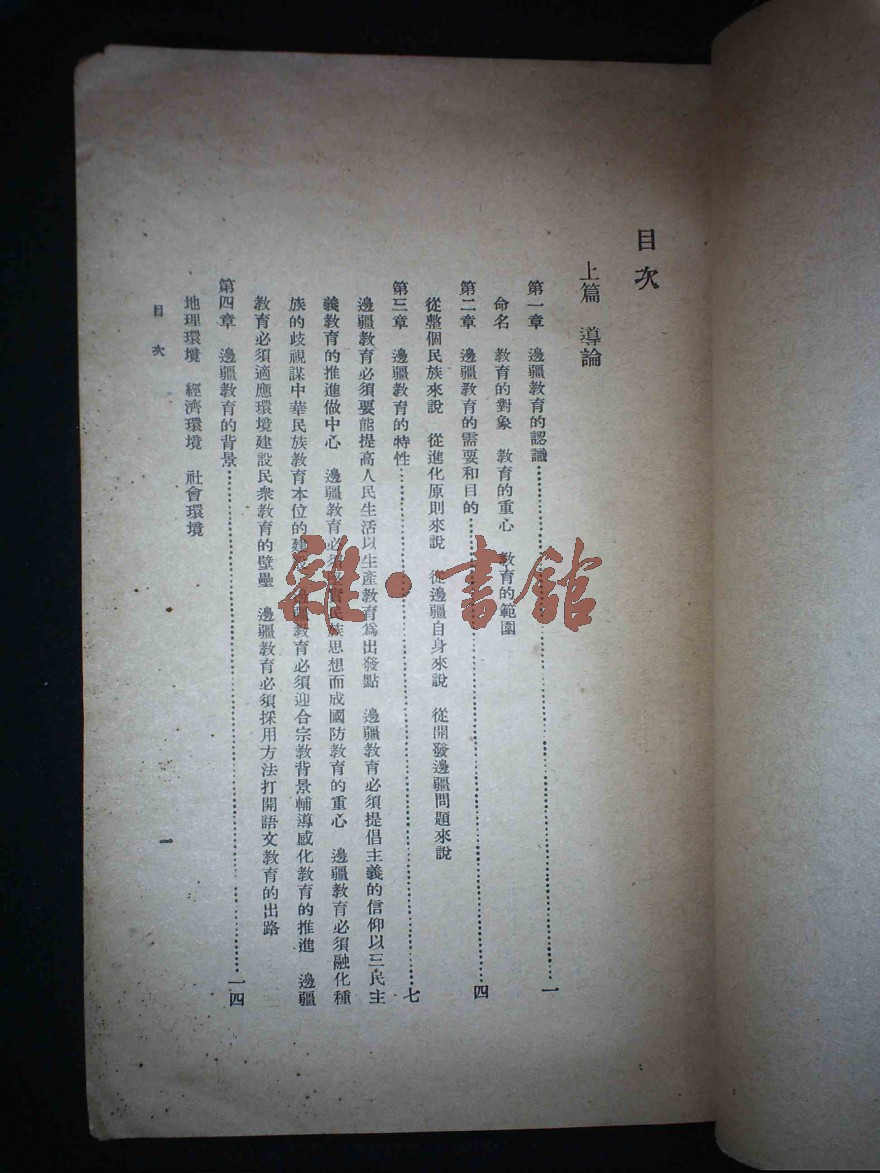 目次
上篇 導論
第一章 邊疆教育的認識……一
命名 教育的對象 教育的重心 教育的範圍
第二章 邊疆教育的需要和目的……四
從整個民族來說 從進化原則來說 從邊疆自身來說 從開發邊疆問題來說
第三章 邊疆教育的特性……七
邊疆教育必須要能提高人民生活以生產教育爲出發點 邊疆教育必須提倡主義的信仰以三民主
義教育的推進做中心 邊疆教育必須 民族思想而成國防教育的重心 邊疆教育必須融化種
族的歧視謀中華民族教育本位的建 邊疆教育必須迎合宗教背景輔導感化教育的推進 邊疆
教育必須適應環境建設民衆教育的壁壘 邊疆教育必須採用方法打開語文教育的出路
第四章 邊疆教育的背景……一四
地理環境 經濟環境 社會環境
目次
一
雜·書館